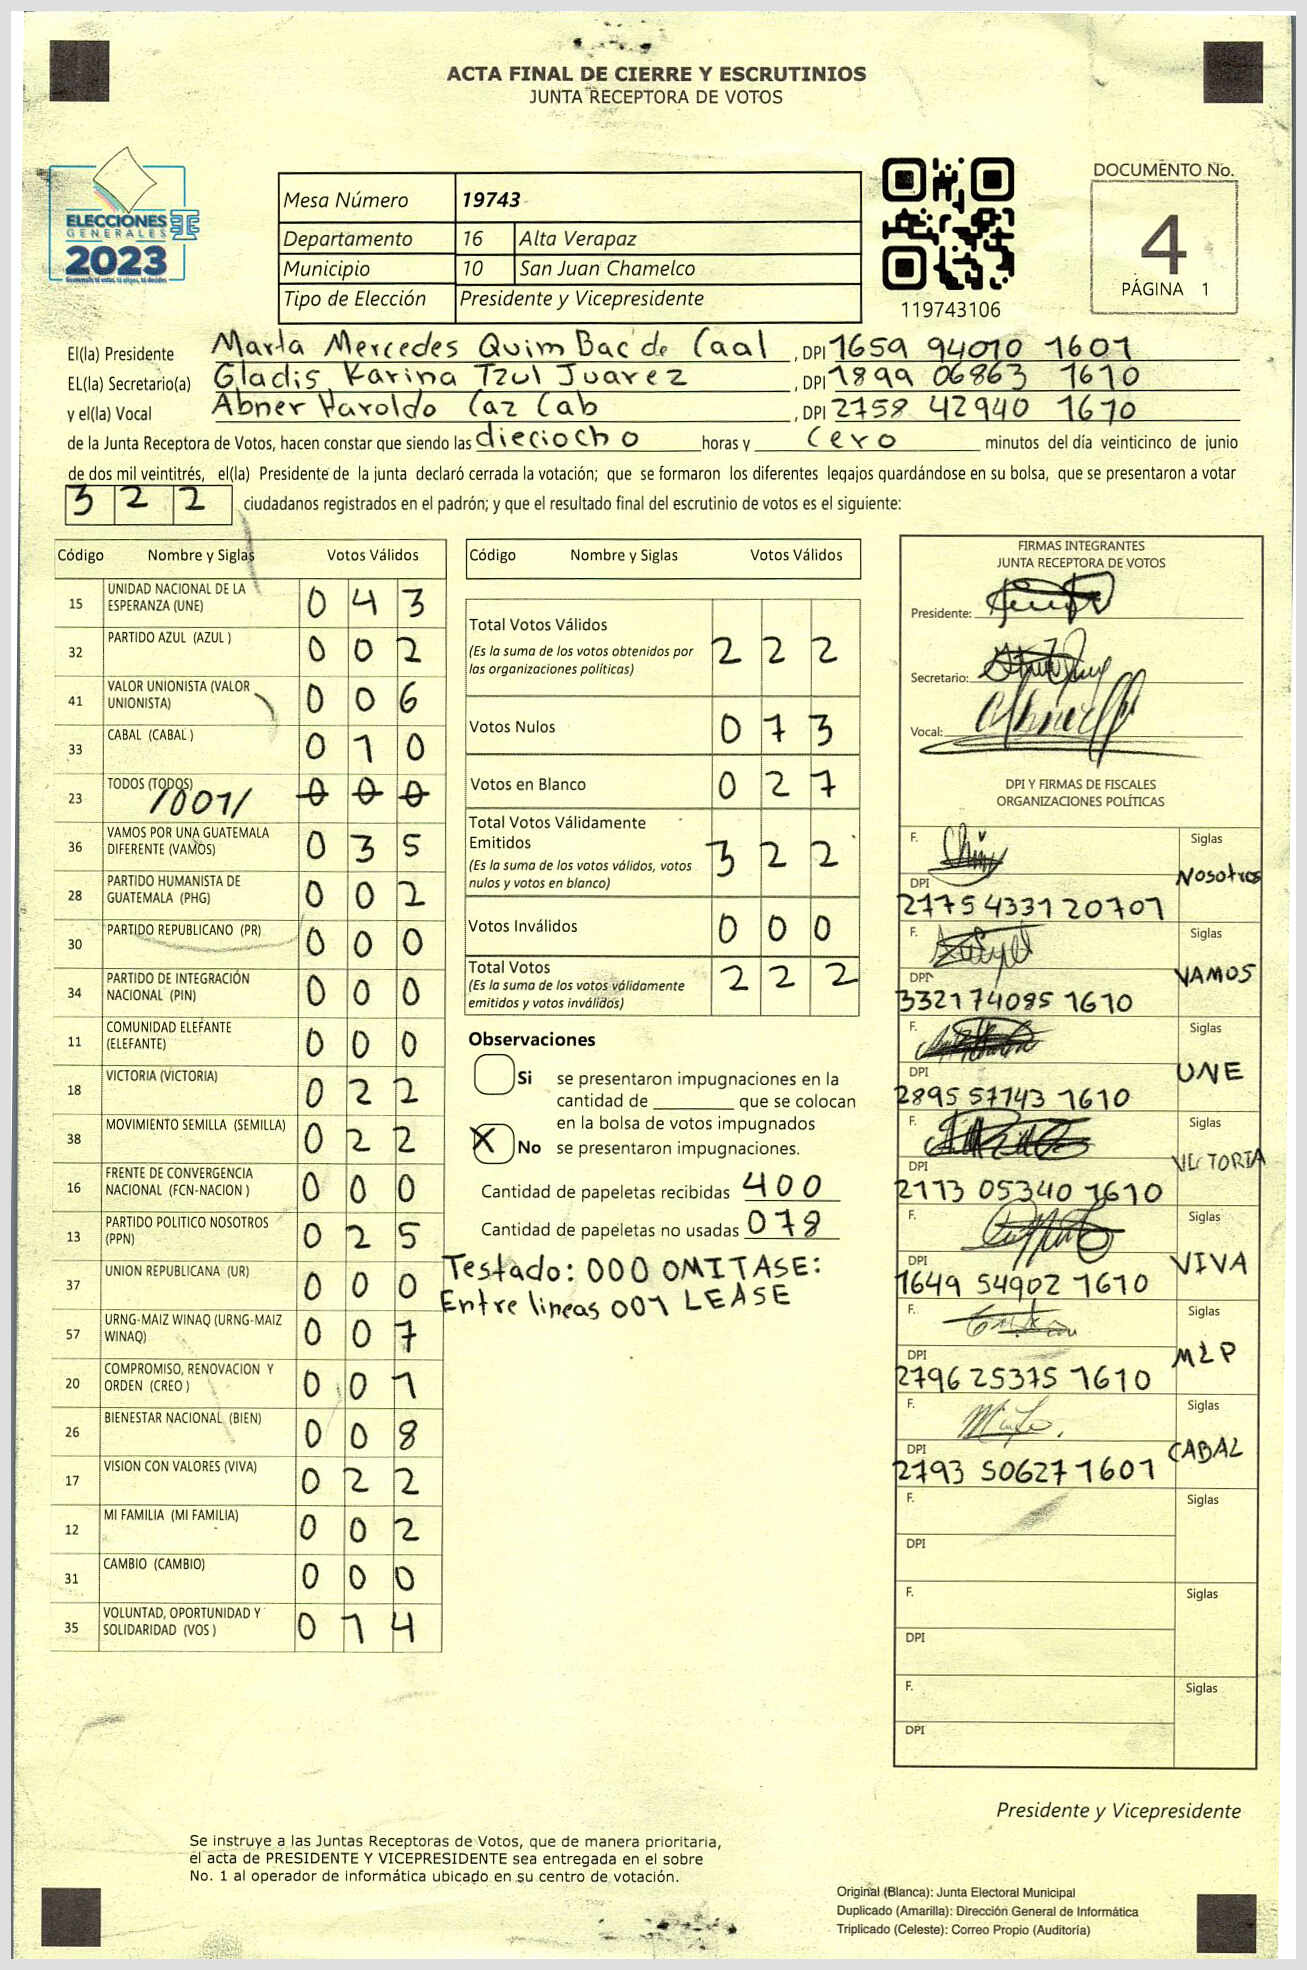 ACTA FINAL DE CIERRE Y ESCRUTINIOS
JUNTA RECEPTORA DE VOTOS
ELECCIONES
GENERALES
2023
Mesa Número 19743
Departamento 16 Alta Verapaz
Municipio 10 San Juan Chamelco
Tipo de Elección Presidente y Vicepresidente
119743106
DOCUMENTO No.
4
PÁGINA 1
El(la) Presidente Marta Mercedes Quim Bac de Caal , DPI 1659 94010 1601
EL(la) Secretario(a) Gladis Karina Tzul Juarez , DPI 1899 06863 1610
y el(la) Vocal Abner Haroldo Caz Cab , DPI 2758 42940 1610
de la Junta Receptora de Votos, hacen constar que siendo las dieciocho horas y cero minutos del día veinticinco de junio
de dos mil veintitrés, el(la) Presidente de la junta declaró cerrada la votación; que se formaron los diferentes legajos quardándose en su bolsa, que se presentaron a votar
322 ciudadanos registrados en el padrón; y que el resultado final del escrutinio de votos es el siguiente:
Código Nombre y Siglas Votos Válidos
15 UNIDAD NACIONAL DE LA ESPERANZA (UNE) 0 4 3
32 PARTIDO AZUL (AZUL ) 0 0 2
41 VALOR UNIONISTA (VALOR UNIONISTA) 0 0 6
33 CABAL (CABAL ) 0 1 0
23 TODOS (TODOS) /001/ 0 0 0
36 VAMOS POR UNA GUATEMALA DIFERENTE (VAMOS) 0 3 5
28 PARTIDO HUMANISTA DE GUATEMALA (PHG) 0 0 2
30 PARTIDO REPUBLICANO (PR) 0 0 0
34 PARTIDO DE INTEGRACIÓN NACIONAL (PIN) 0 0 0
11 COMUNIDAD ELEFANTE (ELEFANTE) 0 0 0
18 VICTORIA (VICTORIA) 0 2 2
38 MOVIMIENTO SEMILLA (SEMILLA) 0 2 2
16 FRENTE DE CONVERGENCIA NACIONAL (FCN-NACION ) 0 0 0
13 PARTIDO POLITICO NOSOTROS (PPN) 0 2 5
37 UNION REPUBLICANA (UR) 0 0 0
57 URNG-MAIZ WINAQ (URNG-MAIZ WINAQ) 0 0 7
20 COMPROMISO, RENOVACION Y ORDEN (CREO ) 0 0 1
26 BIENESTAR NACIONAL (BIEN) 0 0 8
17 VISION CON VALORES (VIVA) 0 2 2
12 MI FAMILIA (MI FAMILIA) 0 0 2
31 CAMBIO (CAMBIO) 0 0 0
35 VOLUNTAD, OPORTUNIDAD Y SOLIDARIDAD (VOS ) 0 1 4
Código Nombre y Siglas Votos Válidos
Total Votos Válidos 2 2 2
(Es la suma de los votos obtenidos por
las organizaciones políticas)
Votos Nulos 0 7 3
Votos en Blanco 0 2 7
Total Votos Válidamente
Emitidos 3 2 2
(Es la suma de los votos válidos, votos
nulos y votos en blanco)
Votos Inválidos 0 0 0
Total Votos 2 2 2
(Es la suma de los votos válidamente
emitidos y votos inválidos)
Observaciones
Si se presentaron impugnaciones en la
cantidad de ________ que se colocan
en la bolsa de votos impugnados
X No se presentaron impugnaciones.
Cantidad de papeletas recibidas 400
Cantidad de papeletas no usadas 078
Testado: 000 OMITASE:
Entre lineas 001 LEASE
FIRMAS INTEGRANTES
JUNTA RECEPTORA DE VOTOS
Presidente:
Secretario:
Vocal:
DPI Y FIRMAS DE FISCALES
ORGANIZACIONES POLÍTICAS
F. Siglas Nosotros
DPI 2775 4331 20701
F. Siglas VAMOS
DPI 3321 74085 1610
F. Siglas UNE
DPI 2895 57743 1610
F. Siglas VICTORIA
DPI 2113 05340 1610
F. Siglas VIVA
DPI 1649 54902 1610
F. Siglas MLP
DPI 2796 25375 1610
F. Siglas CABAL
DPI 2793 50627 1601
F. Siglas
DPI
F. Siglas
DPI
F. Siglas
DPI
Presidente y Vicepresidente
Se instruye a las Juntas Receptoras de Votos, que de manera prioritaria,
el acta de PRESIDENTE Y VICEPRESIDENTE sea entregada en el sobre
No. 1 al operador de informática ubicado en su centro de votación.
Original (Blanca): Junta Electoral Municipal
Duplicado (Amarilla): Dirección General de Informática
Triplicado (Celeste): Correo Propio (Auditoría)